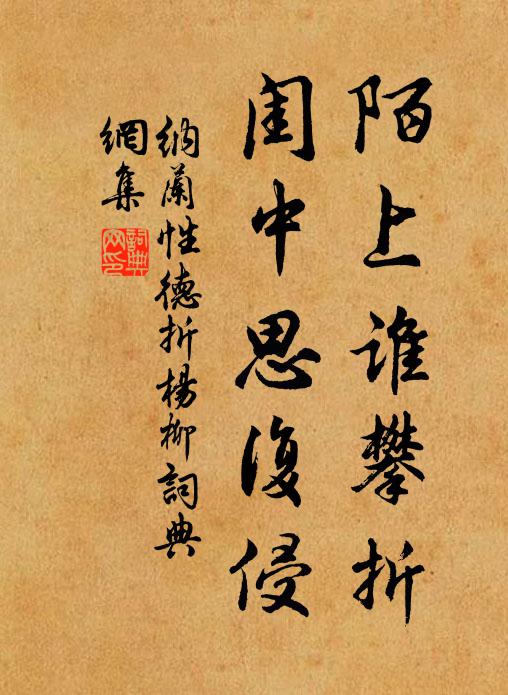 陌上谁攀折
闺中思复侵
納蘭性德折楊柳詞典
網集
詞典
网印